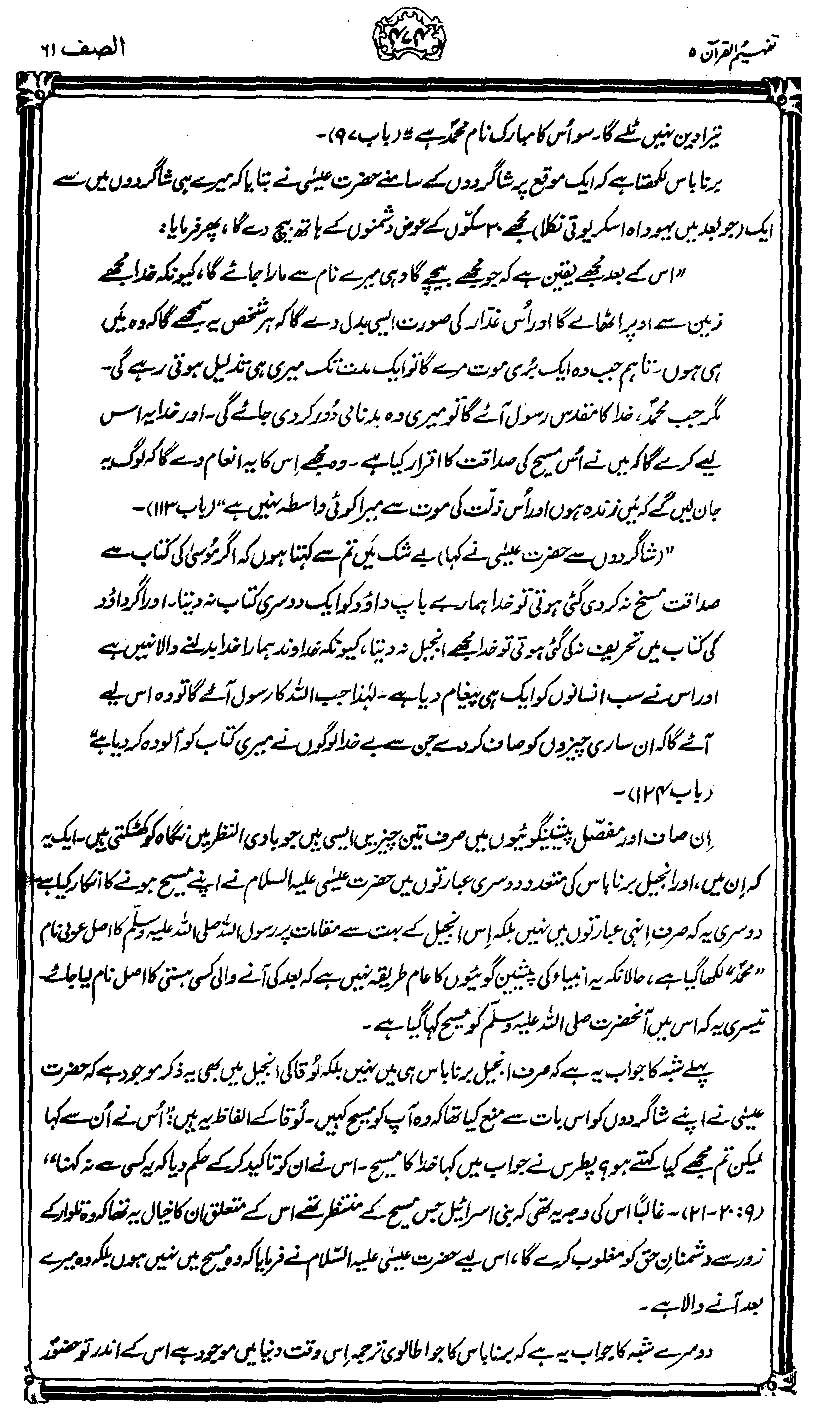 تفہیم القرآن ۵
۴۷۴
الصف ۶۱
تیرا دین نہیں ٹلے گا۔ سو اُس کا مبارک نام محمدؐ ہے" (باب ۹۷)۔
برناباس لکھتا ہے کہ ایک موقع پر شاگردوں کے سامنے حضرت عیسیٰ نے بتایا کہ میرے ہی شاگردوں میں سے
ایک (جو بعد میں یہوداہ اسکریوتی نکلا) مجھے ۳۰ سکّوں کے عوض دشمنوں کے ہاتھ بیچ دے گا، پھر فرمایا:
"اس کے بعد مجھے یقین ہے کہ جو مجھے بیچے گا وہی میرے نام سے مارا جائے گا، کیونکہ خدا مجھے
زمین سے اوپر اٹھا لے گا اور اُس غدّار کی صورت ایسی بدل دے گا کہ ہر شخص یہ سمجھے گا کہ وہ مَیں
ہی ہوں۔ تاہم جب وہ ایک بُری موت مرے گا تو ایک مدت تک میری ہی تذلیل ہوتی رہے گی۔
مگر جب محمدؐ، خدا کا مقدس رسول آئے گا تو میری وہ بدنامی دُور کر دی جائے گی۔ اور خدا یہ اس
لیے کرے گا کہ میں نے اُس مسیح کی صداقت کا اقرار کیا ہے۔ وہ مجھے اِس کا یہ انعام دے گا کہ لوگ یہ
جان لیں گے کہ مَیں زندہ ہوں اور اُس ذلّت کی موت سے میرا کوئی واسطہ نہیں ہے" (باب ۱۱۳)۔
"(شاگردوں سے حضرت عیسیٰ نے کہا) بے شک مَیں تم سے کہتا ہوں کہ اگر موسیٰ کی کتاب سے
صداقت مسخ نہ کر دی گئی ہوتی تو خدا ہمارے باپ داؤد کو ایک دوسری کتاب نہ دیتا۔ اور اگر داؤد
کی کتاب میں تحریف نہ کی گئی ہوتی تو خدا مجھے انجیل نہ دیتا، کیونکہ خداوند ہمارا خدا بدلنے والا نہیں ہے
اور اس نے سب انسانوں کو ایک ہی پیغام دیا ہے۔ لہٰذا جب اللہ کا رسول آئے گا تو وہ اس لیے
آئے گا کہ ان ساری چیزوں کو صاف کر دے جن سے بے خدا لوگوں نے میری کتاب کو آلودہ کر دیا ہے"
(باب ۱۲۴)۔
اِن صاف اور مفصّل پیشینگوئیوں میں صرف تین چیزیں ایسی ہیں جو بادی النظر میں نگاہ کو کھٹکتی ہیں۔ ایک یہ
کہ اِن میں، اور انجیل برناباس کی متعدد دوسری عبارتوں میں حضرت عیسیٰ علیہ السلام نے اپنے مسیح ہونے کا انکار کیا ہے۔
دوسری یہ کہ صرف اِنہی عبارتوں میں نہیں بلکہ اِس انجیل کے بہت سے مقامات پر رسول اللہ صلی اللہ علیہ وسلّم کا اصل عربی نام
"محمدؐ" لکھا گیا ہے، حالانکہ یہ انبیاء کی پیشین گوئیوں کا عام طریقہ نہیں ہے کہ بعد کی آنے والی کسی ہستی کا اصل نام لیا جائے۔
تیسری یہ کہ اس میں آنحضرت صلی اللہ علیہ وسلّم کو مسیح کہا گیا ہے۔
پہلے شبہ کا جواب یہ ہے کہ صرف انجیل برناباس ہی میں نہیں بلکہ لُوقا کی انجیل میں بھی یہ ذکر موجود ہے کہ حضرت
عیسیٰ نے اپنے شاگردوں کو اس بات سے منع کیا تھا کہ وہ آپ کو مسیح کہیں۔ لُوقا کے الفاظ یہ ہیں: "اُس نے اُن سے کہا
لیکن تم مجھے کیا کہتے ہو؟ پطرس نے جواب میں کہا خدا کا مسیح۔ اس نے ان کو تاکید کر کے حکم دیا کہ یہ کسی سے نہ کہنا"
(۹: ۲۰-۲۱)۔ غالباً اس کی وجہ یہ تھی کہ بنی اسرائیل جس مسیح کے منتظر تھے اس کے متعلق ان کا خیال یہ تھا کہ وہ تلوار کے
زور سے دشمنانِ حق کو مغلوب کرے گا، اس لیے حضرت عیسیٰ علیہ السّلام نے فرمایا کہ وہ مسیح میں نہیں ہوں بلکہ وہ میرے
بعد آنے والا ہے۔
دوسرے شبہ کا جواب یہ ہے کہ برناباس کا جو اطالوی ترجمہ اِس وقت دنیا میں موجود ہے اس کے اندر تو حضورؐ